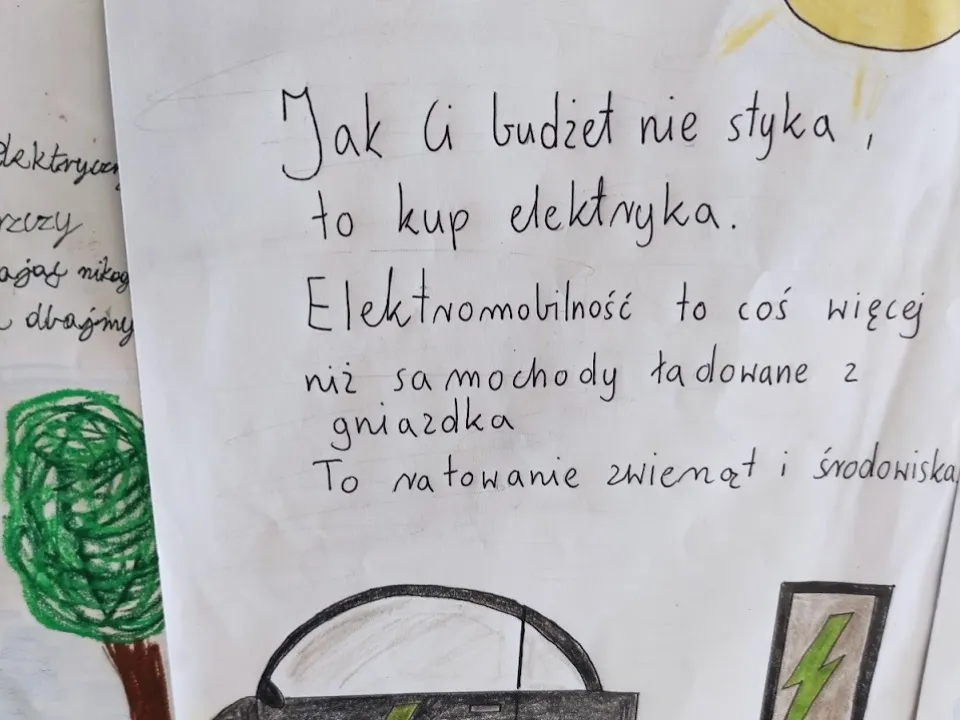 Jak Ci budżet nie styka,
to kup elektryka.
Elektromobilność to coś więcej
niż samochody ładowane z
gniazdka
To ratowanie zwierząt i środowiska
nikog
dbajmy